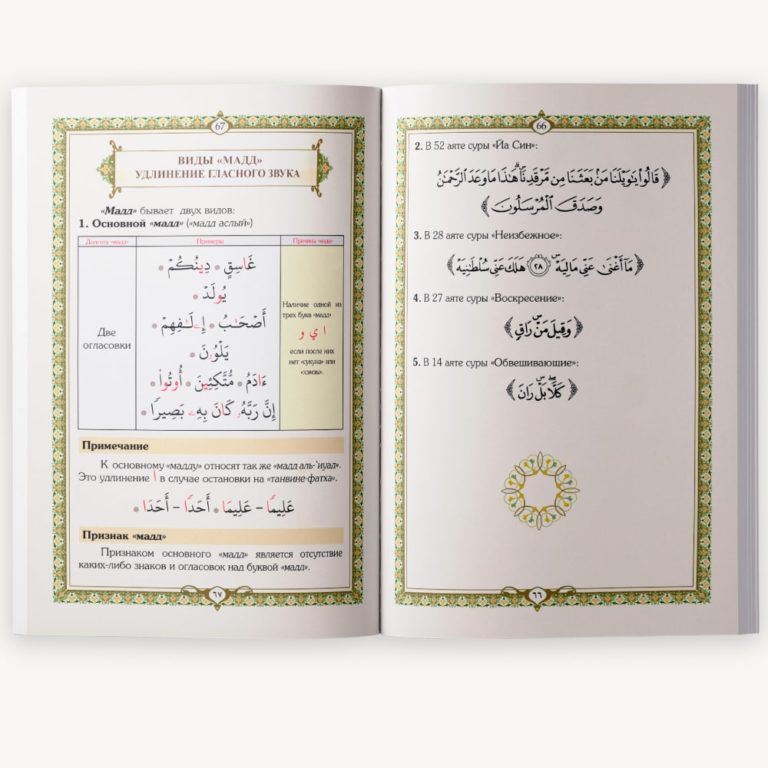 66
2. В 52 аяте суры «Йа Син»:
﴿ قَالُوا۟ يَٰوَيْلَنَا مَنۢ بَعَثَنَا مِن مَّرْقَدِنَاۜ ۗ هَٰذَا مَا وَعَدَ ٱلرَّحْمَٰنُ
وَصَدَقَ ٱلْمُرْسَلُونَ ﴾
3. В 28 аяте суры «Неизбежное»:
﴿ مَآ أَغْنَىٰ عَنِّى مَالِيَهْۜ ٢٨ هَلَكَ عَنِّى سُلْطَٰنِيَهْ ﴾
4. В 27 аяте суры «Воскресение»:
﴿ وَقِيلَ مَنْۜ رَاقٍ ﴾
5. В 14 аяте суры «Обвешивающие»:
﴿ كَلَّا بَلْۜ رَانَ ﴾
٦٦
67
ВИДЫ «МАДД»
УДЛИНЕНИЕ ГЛАСНОГО ЗВУКА
«Мадд» бывает двух видов:
1. Основной «мадд» («мадд аслый»)
Долгота «мадд» Примеры Причина «мадд»
Две огласовки
غَاسِقٍ • دِينُكُمْ •
يُولَدْ •
أَصْحَٰبُ • إِۦلَٰفِهِمْ •
يَلْوُۥنَ •
ءَادَمُ • مُتَّكِئِينَ • أُوتُوا۟ •
إِنَّ رَبَّهُۥ كَانَ بِهِۦ بَصِيرًا •
Наличие одной из
трех букв «мадд»
ا ي و
если после них
нет «сукуна» или
«хамзы».
Примечание
К основному «мадду» относят так же «мадд аль-'иуад».
Это удлинение ا в случае остановки на «танвине-фатха».
عَلِيمًا – عَلِيمَا • أَحَدًا – أَحَدَا •
Признак «мадд»
Признаком основного «мадд» является отсутствие
каких-либо знаков и огласовок над буквой «мадд».
٦٧